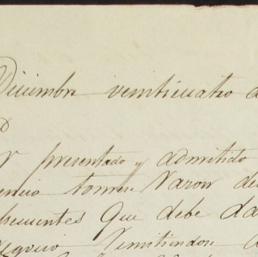 Diciembre veinticuatro d
D
r presentado y admitido
encio torres Varon de
hecuentes que debe da
Vimitiendose